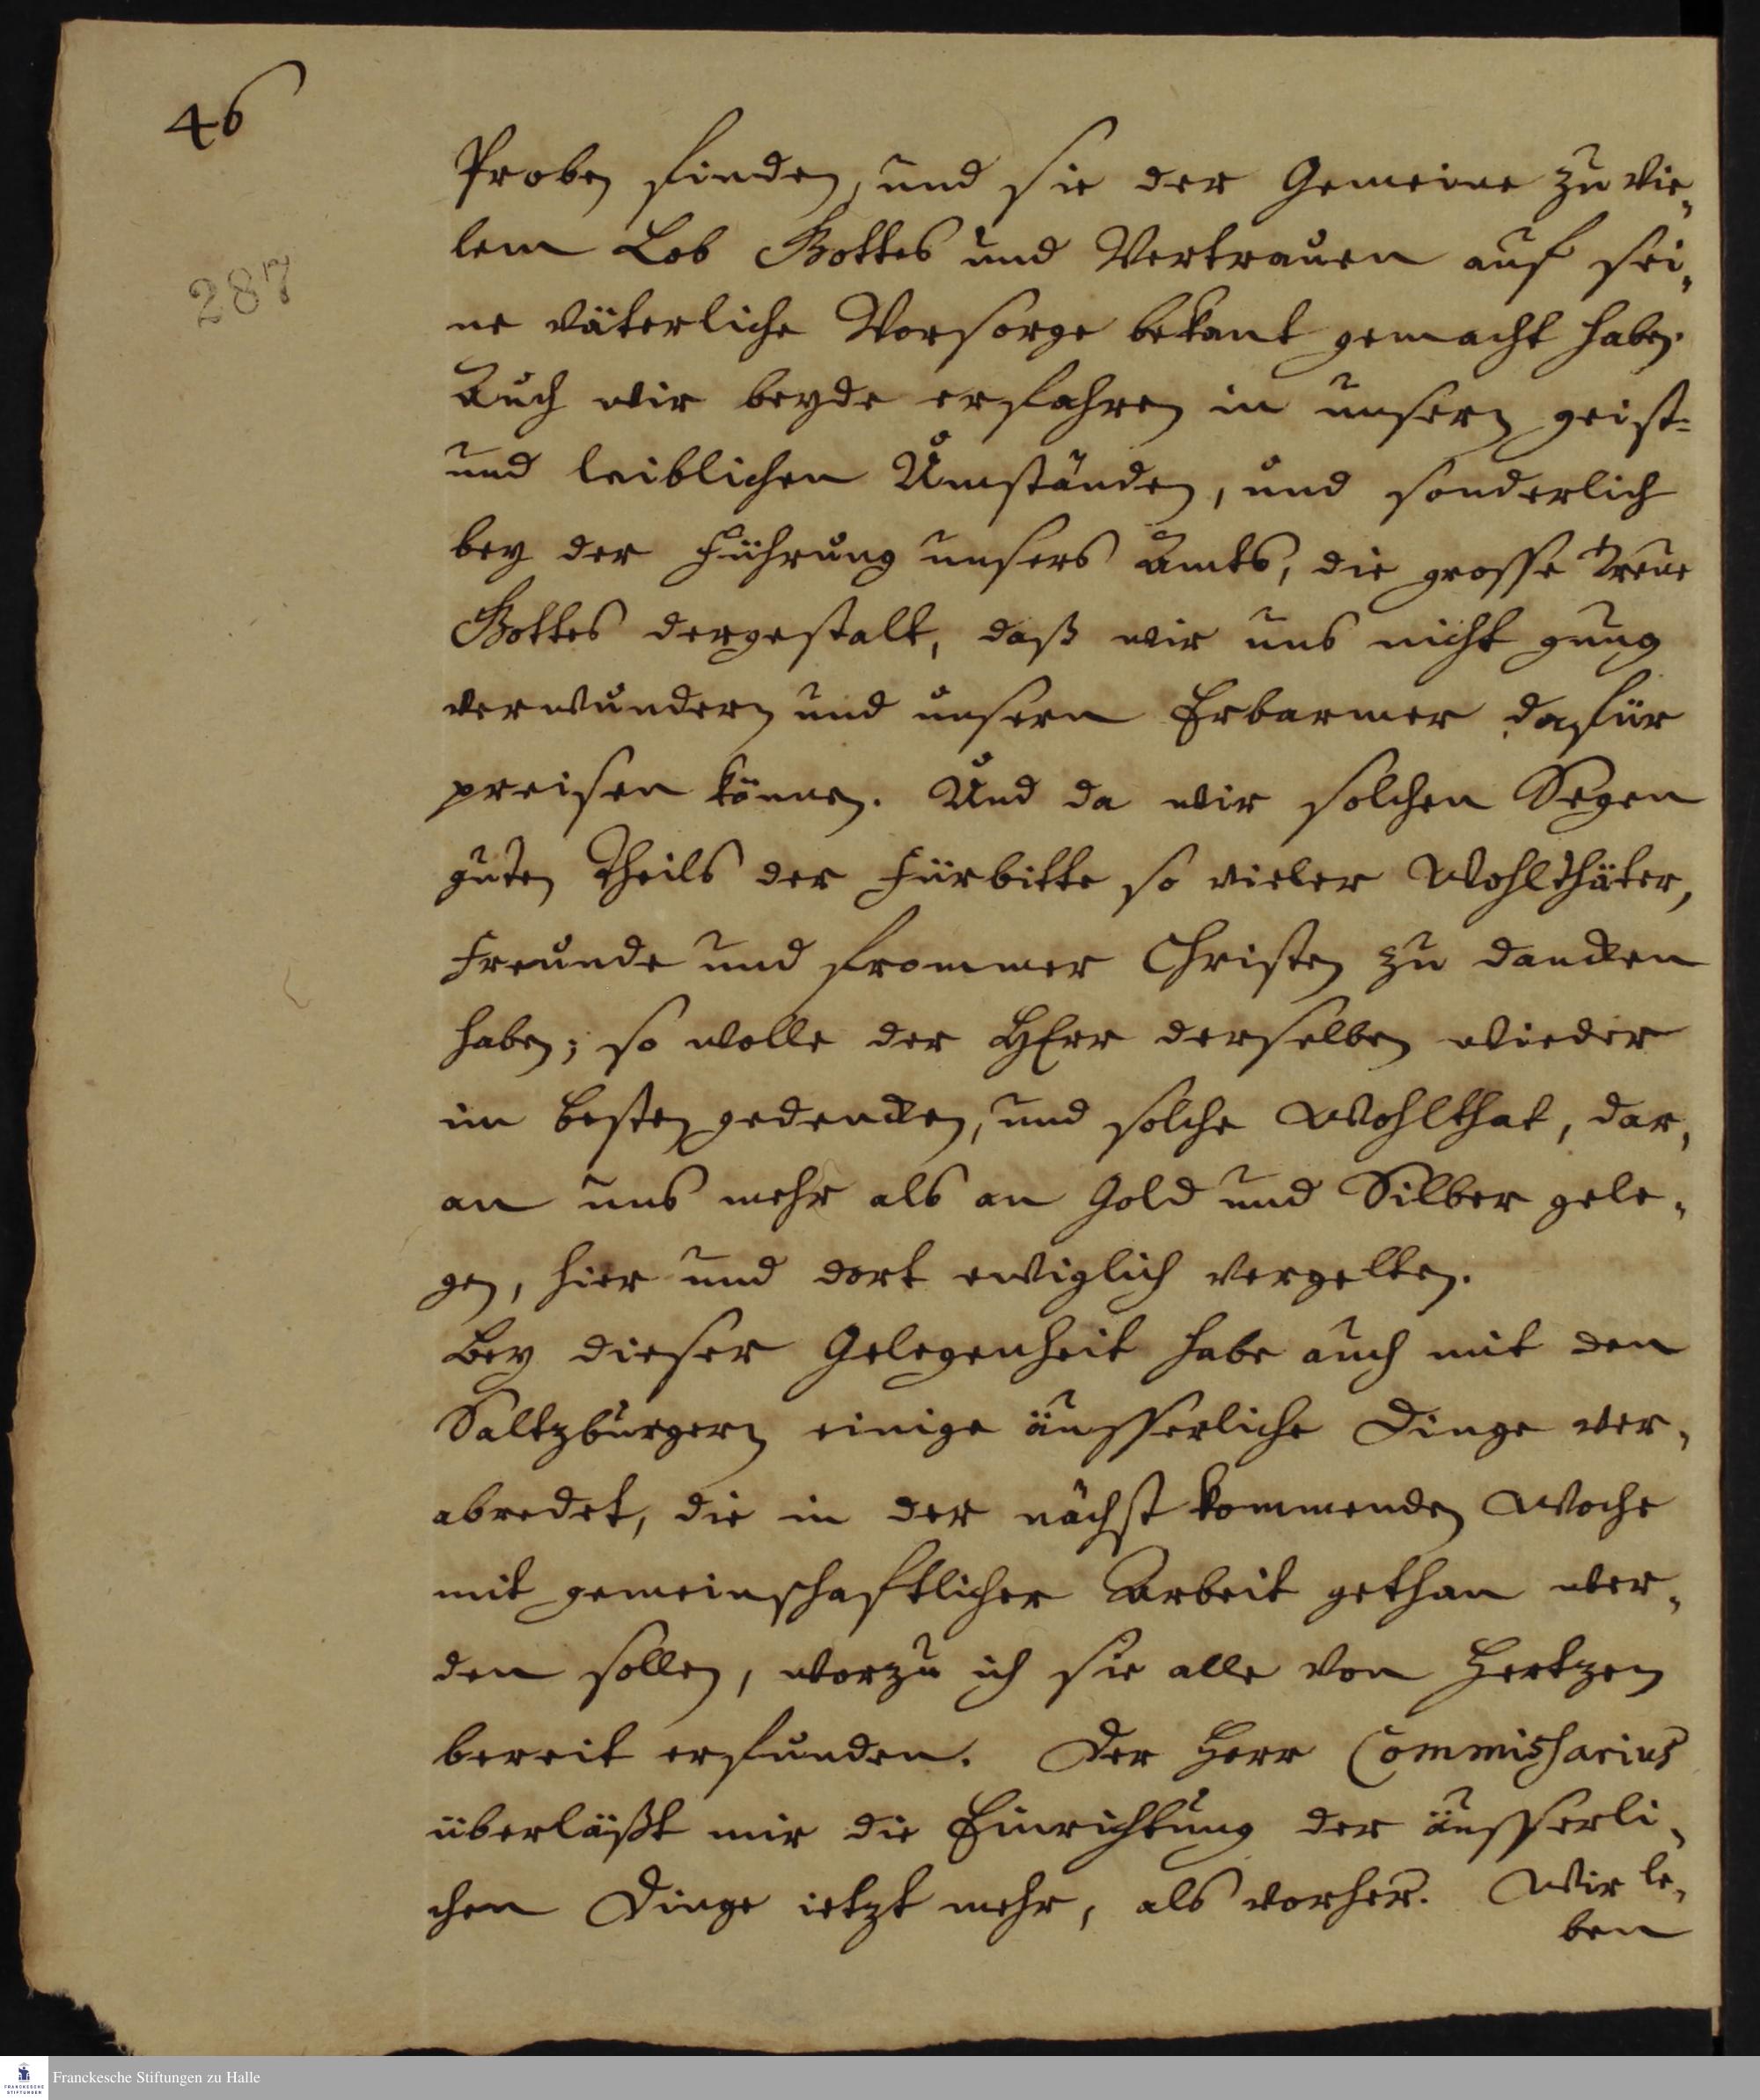 46
287
Proben finden, und sie der Gemeine zu vie„
lem Lob Gottes und Vertrauen auf sei„
ne väterliche Vorsorge bekant gemacht haben.
Auch wir beyde erfahren in unsern geist=
und leiblichen Umständen, und sonderlich
bey der Führung unsers Amts, die grosse Treue
Gottes dergestalt, daß wir uns nicht gnug
verwundern und unsern Erbarmer dafür
preisen können. Und da wir solchen Segen
guten Theils der Fürbitte so vieler Wohlthäter,
Freunde und frommer Christen zu dancken
haben; so wolle der HErr derselben wieder
im besten gedencken, und solche Wohlthat, dar„
an uns mehr als an Gold und Silber gele„
gen, hier und dort ewiglich vergelten.
Bey dieser Gelegenheit habe auch mit den
Saltzburgern einige äusserliche Dinge ver„
abredet, die in der nächst kommenden Woche
mit gemeinschaftlicher Arbeit gethan wer„
den sollen, worzu ich sie alle von Hertzen
bereit erfunden. Der Herr Commissarius
überläßt mir die Einrichtung der äusserli„
chen Dinge ietzt mehr, als vorher. Wir le„
ben
FRANCKESCHE STIFTUNGEN
Franckesche Stiftungen zu Halle